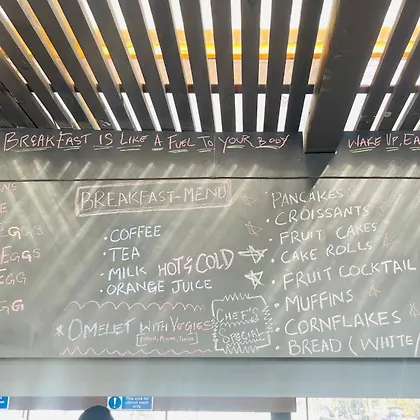 BREAKFAST IS LIKE A FUEL TO YOUR BODY
WAKE UP, EA
EGGS
EGG
GG
BREAKFAST-MENU
• COFFEE
• TEA
• MILK HOT & COLD
• ORANGE JUICE
* OMELET WITH VEGGIES
CHEF'S
SPECIAL
PANCAKES
• CROISSANTS
• FRUIT CAKES
• CAKE ROLLS
• FRUIT COCKTAIL
• MUFFINS
• CORNFLAKES
• BREAD (WHITE/